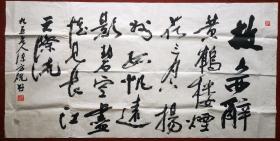 故人西辭
黄鶴樓煙
花三月下揚
州孤帆遠
影碧空盡
惟見長江
天際流
九五老人陈方既